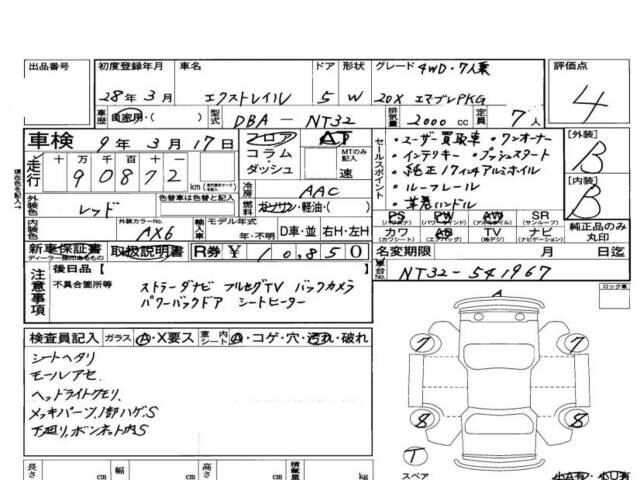 出品番号 初度登録年月 車名 ドア 形状 グレード 4WD・7人乗 評価点
28年3月 エクストレイル 5 W 20X エマブレPKG 4
車歴 自家用・( 型式 DBA－NT32 排気量 2000 cc 定員 7人
車検 9年3月17日 フロア AT
コラム
ダッシュ
MTのみ記入
速
セールスポイント
・ユーザー買取車・ワンオーナー
・インテリキー・プッシュスタート
・純正17インチアルミホイル
・ルーフレール
・革巻ハンドル
[外装]
B
[内装]
B
現在色を記入→
走行 十 万 千 百 十
90872 km
冷房 AAC
外装色 レッド 色替車は色替と記入 色替前( ) 燃料 ガソリン・軽油・(
PS PW AW SR
(パワステ) (パワーウィンド) (アルミホイル) (サンルーフ)
カワ AB TV ナビ
(カワシート) (エアバッグ) (地デジ) (ナビゲーション)
純正品のみ丸印
内装色 外装カラーNo. AX6 輸入車 モデル年式 年・不明 D車・並 右H・左H
新車保証書 取扱説明書 R券 ￥10,850
ディーラー販印あるもの
名変期限 月 日迄
車台No. NT32-541967
注意事項
後日品【 】
不具合箇所等
ストラーダナビ フルセグTV バックカメラ
パワーバックドア シートヒーター
ロック車
検査員記入 ガラス A・X要ス 室内シート A・コゲ・穴・汚れ・破れ
シートヘタリ
モールアセ.
ヘッドライトクモリ.
メッキパーツ.1部ハゲ.S
下廻り.ボンネット内S
A
7 7
8 8
T
スペア
長さ cm 幅 cm 高さ cm 積載量 kg